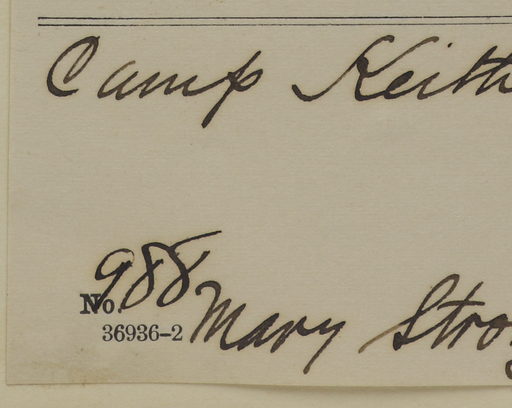 Camp Keith
No. 988
36936-2 Mary Stro